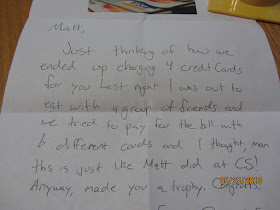 Matt,
Just thinking of how we
ended up charging 4 credit cards
for you last night I was out to
eat with a group of friends and
we tried to pay for the bill with
6 different cards and I thought, man
this is just like Matt did at CS!
Anyway, made you a trophy. Congrats.